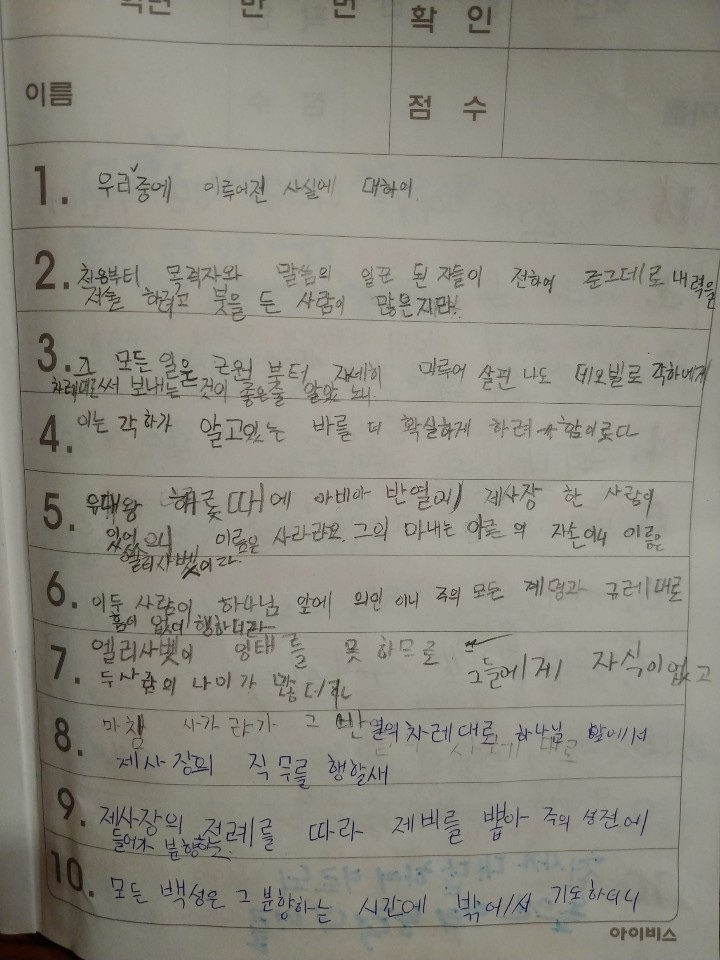 학년 반 번 확 인
이름 점 수
1. 우리 중에 이루어진 사실에 대하여
2. 처음부터 목격자와 말씀의 일꾼 된 자들이 전하여 준그데로 내력을
저술 하려고 붓을 든 사람이 많은지라!
3. 그 모든 일을 근원 부터 자세히 미루어 살핀 나도 데오빌로 각하에게
차례대로써서 보내는 것이 좋은줄 알았 노니
4. 이는 각하가 알고있는 바를 더 확실하게 하려 함이로다
5. 유대왕 헤롯 때에 아비야 반열에 제사장 한 사람이
있었으니 이름은 사가랴요. 그의 아내는 아론 의 자손이니 이름은
엘리사벳이라.
6. 이두 사람이 하나님 앞에 의인 이니 주의 모든 계명과 규례대로
흠이 없이 행하더라
7. 엘리사벳이 잉태를 못 하므로 그들에게 자식이 없고
두사람의 나이가 많더라
8. 마침 사가 랴가 그 반열의 차례대로 하나님 앞에서
제사장의 직무를 행할새
9. 제사장의 전례를 따라 제비를 뽑아 주의 성전에
들어가 분향하고
10. 모든 백성은 그 분향하는 시간에 밖에서 기도하더니
아이비스